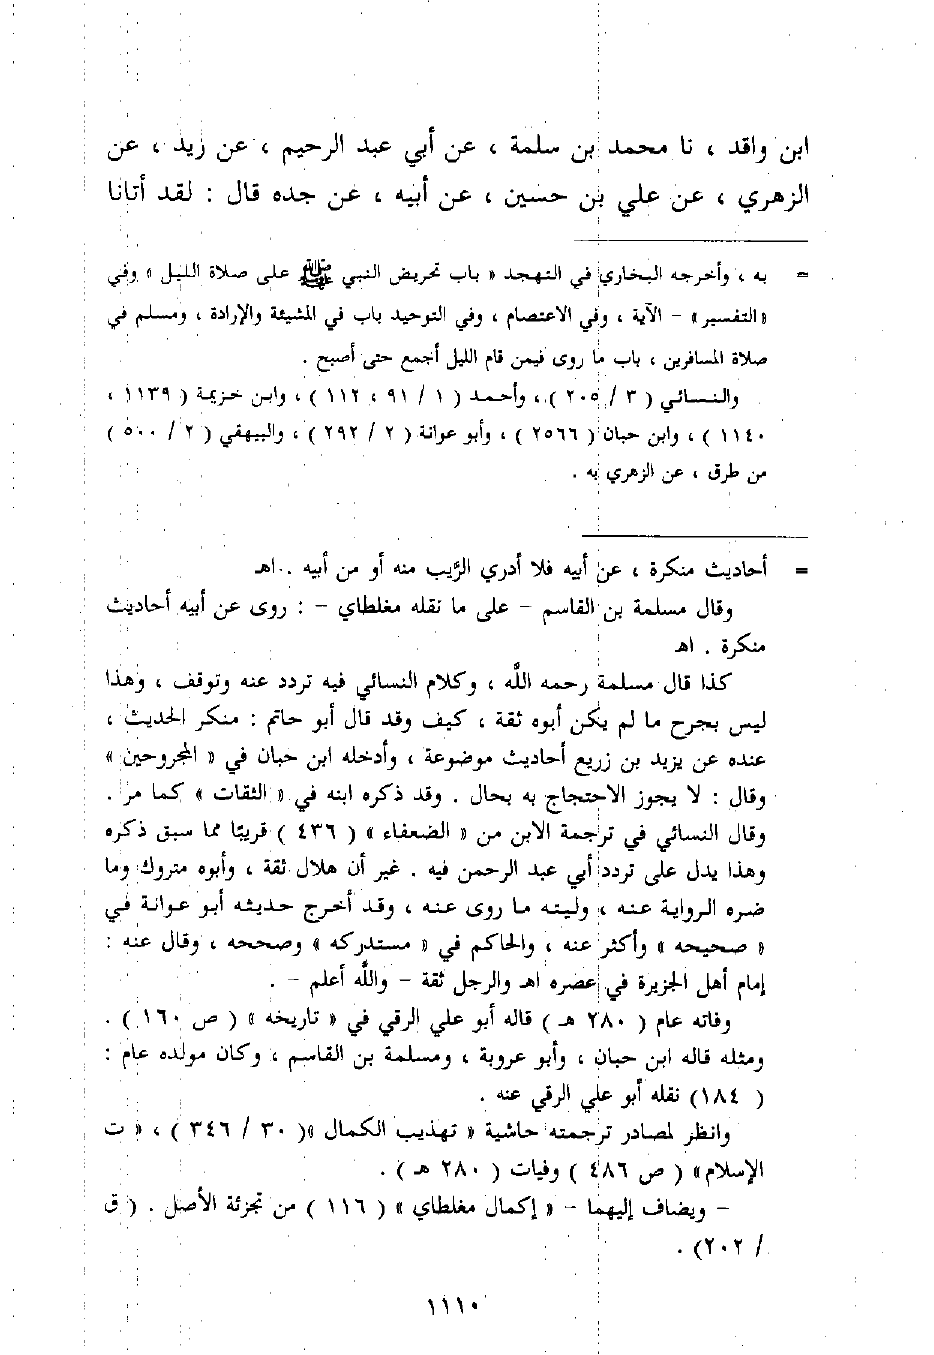 ابن واقد ، نا محمد بن سلمة ، عن أبي عبد الرحيم ، عن زيد ، عن
الزهري ، عن علي بن حسين ، عن أبيه ، عن جده قال : لقد أتانا
= به ، وأخرجه البخاري في التهجد « باب تحريض النبي ﷺ على صلاة الليل » وفي
«التفسير» - الآية ، وفي الاعتصام ، وفي التوحيد باب في المشيئة والإرادة ، ومسلم في
صلاة المسافرين ، باب ما روى فيمن قام الليل أجمع حتى أصبح .
والنسائي ( ٣ / ٢٠٥ ) ، وأحمد ( ١ / ٩١ ، ١١٢ ) ، وابن خزيمة ( ١١٣٩ ،
١١٤٠ ) ، وابن حبان ( ٢٥٦٦ ) ، وأبو عوانة ( ٢ / ٢٩٢ ) ، والبيهقي ( ٢ / ٥٠٠ )
من طرق ، عن الزهري به .
= أحاديث منكرة ، عن أبيه فلا أدري الرَّيب منه أو من أبيه . اهـ
وقال مسلمة بن القاسم - على ما نقله مغلطاي - : روى عن أبيه أحاديث
منكرة . اهـ
كذا قال مسلمة رحمه اللَّه ، وكلام النسائي فيه تردد عنه وتوقف ، وهذا
ليس بجرح ما لم يكن أبوه ثقة ، كيف وقد قال أبو حاتم : منكر الحديث ،
عنده عن يزيد بن زريع أحاديث موضوعة ، وأدخله ابن حبان في « المجروحين »
وقال : لا يجوز الاحتجاج به بحال . وقد ذكره ابنه في « الثقات » كما مر .
وقال النسائي في ترجمة الابن من « الضعفاء » ( ٤٣٦ ) قريبًا مما سبق ذكره
وهذا يدل على تردد أبي عبد الرحمن فيه . غير أن هلال ثقة ، وأبوه متروك وما
ضره الرواية عنه ، وليته ما روى عنه ، وقد أخرج حديثه أبو عوانة في
« صحيحه » وأكثر عنه ، والحاكم في « مستدركه » وصححه ، وقال عنه :
إمام أهل الجزيرة في عصره اهـ والرجل ثقة - واللَّه أعلم - .
وفاته عام ( ٢٨٠ هـ ) قاله أبو علي الرقي في « تاريخه » ( ص ١٦٠ ) .
ومثله قاله ابن حبان ، وأبو عروبة ، ومسلمة بن القاسم ، وكان مولده عام :
( ١٨٤) نقله أبو علي الرقي عنه .
وانظر لمصادر ترجمته حاشية « تهذيب الكمال »( ٣٠ / ٣٤٦ ) ، « ت
الإسلام» ( ص ٤٨٦ ) وفيات ( ٢٨٠ هـ ) .
- ويضاف إليهما - « إكمال مغلطاي » ( ١١٦ ) من تجزئة الأصل . ( ق
/ ٢٠٢) .
١١١٠